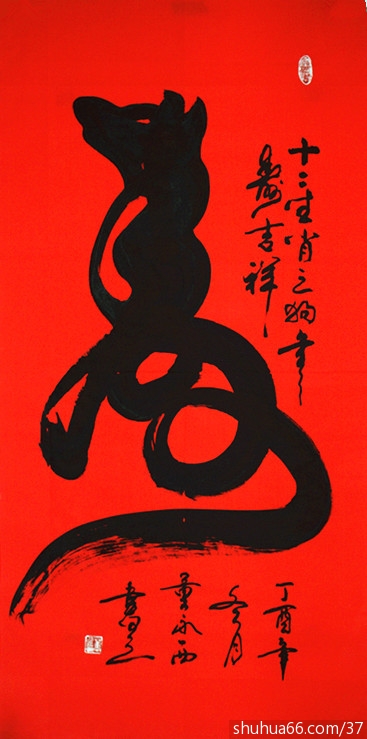 十二生肖之狗
吉祥
丁酉年
冬月
董永西
書之
shuhua66.com/37